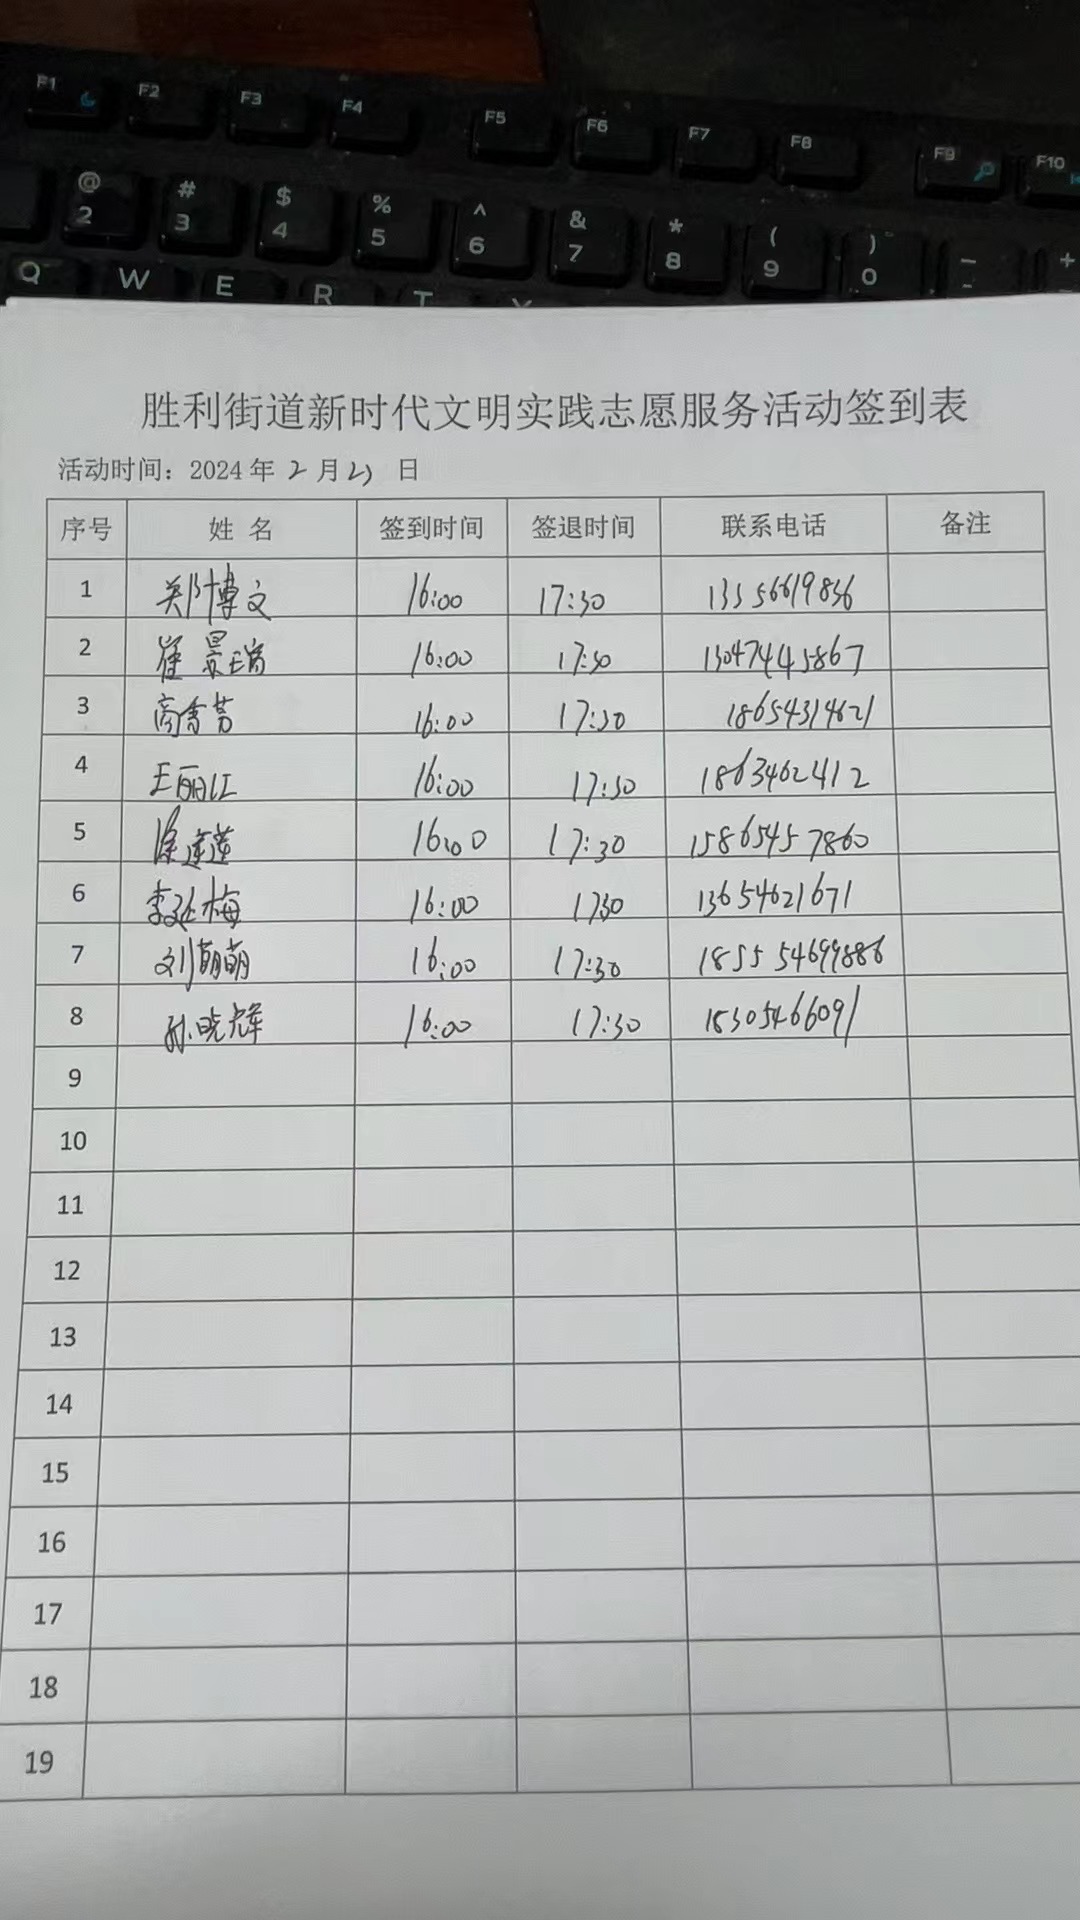 F1 F2 F3 F4 F5 F6 F7 F8 F9 F10
@ # $ % ^ & * ( ) - +
2 3 4 5 6 7 8 9 0 -
Q W E R T Y
胜利街道新时代文明实践志愿服务活动签到表
活动时间：2024年2月23日
序号 姓名 签到时间 签退时间 联系电话 备注
1 郑博文 16:00 17:30 13556619836
2 崔景瑞 16:00 17:30 13047445867
3 高香芳 16:00 17:30 18654314621
4 王丽江 16:00 17:30 1863462412
5 徐莲莲 16:00 17:30 15865457860
6 李延梅 16:00 1730 13654621671
7 刘萌萌 16:00 17:30 185554699886
8 孙晓辉 16:00 17:30 18305466091
9
10
11
12
13
14
15
16
17
18
19